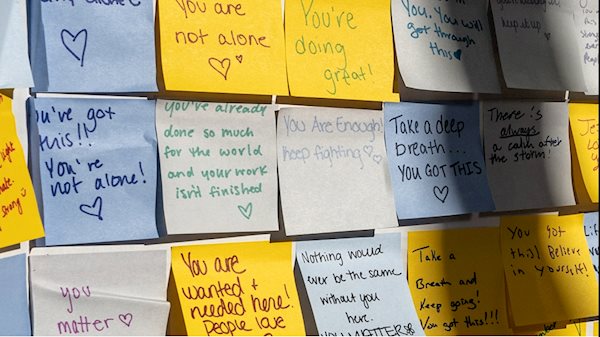 alone!
You are
not alone
You're
doing
great!
You. You will
get through
this
keep it up
You've got
this!!
You're
not alone!
you've already
done so much
for the world
and your work
isn't finished
You Are Enough!
keep fighting
Take a deep
breath...
YOU GOT THIS
There is
always
a calm after
the storm!
strong
you
matter
You are
wanted +
needed here!
People love
Nothing would
ever be the same
without you
here.
YOU MATTER
Take a
Breath and
Keep going!
You got this!!!
You got
this! Believe
in yourself!